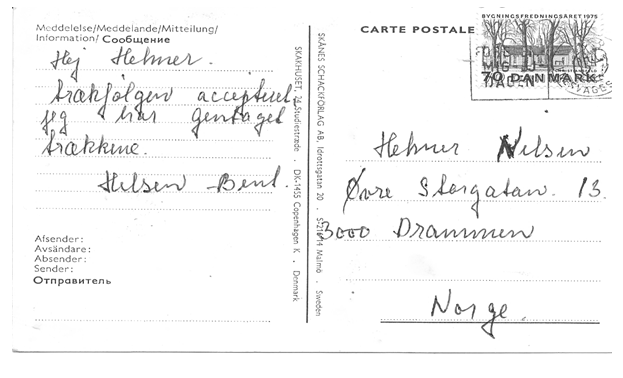 Meddelelse/Meddelande/Mitteilung/
Information/ Сообщение
Hej Helmer.
trækfølgen accepteret.
jeg har gentaget
trækkene.
Hilsen Bent.
Afsender:
Avsändare:
Absender:
Sender:
Отправитель
SKAKHUSET, 24 Studiestræde . DK-1455 Copenhagen K . Denmark
SKÅNES SCHACKFÖRLAG AB, Idrottsgatan 20 . S-21614 Malmö . Sweden
CARTE POSTALE
BYGNINGSFREDNINGSÅRET 1975
70 DANMARK
Helmer Nilsen
Øvre Storgatan. 13.
3000 Drammen
Norge.